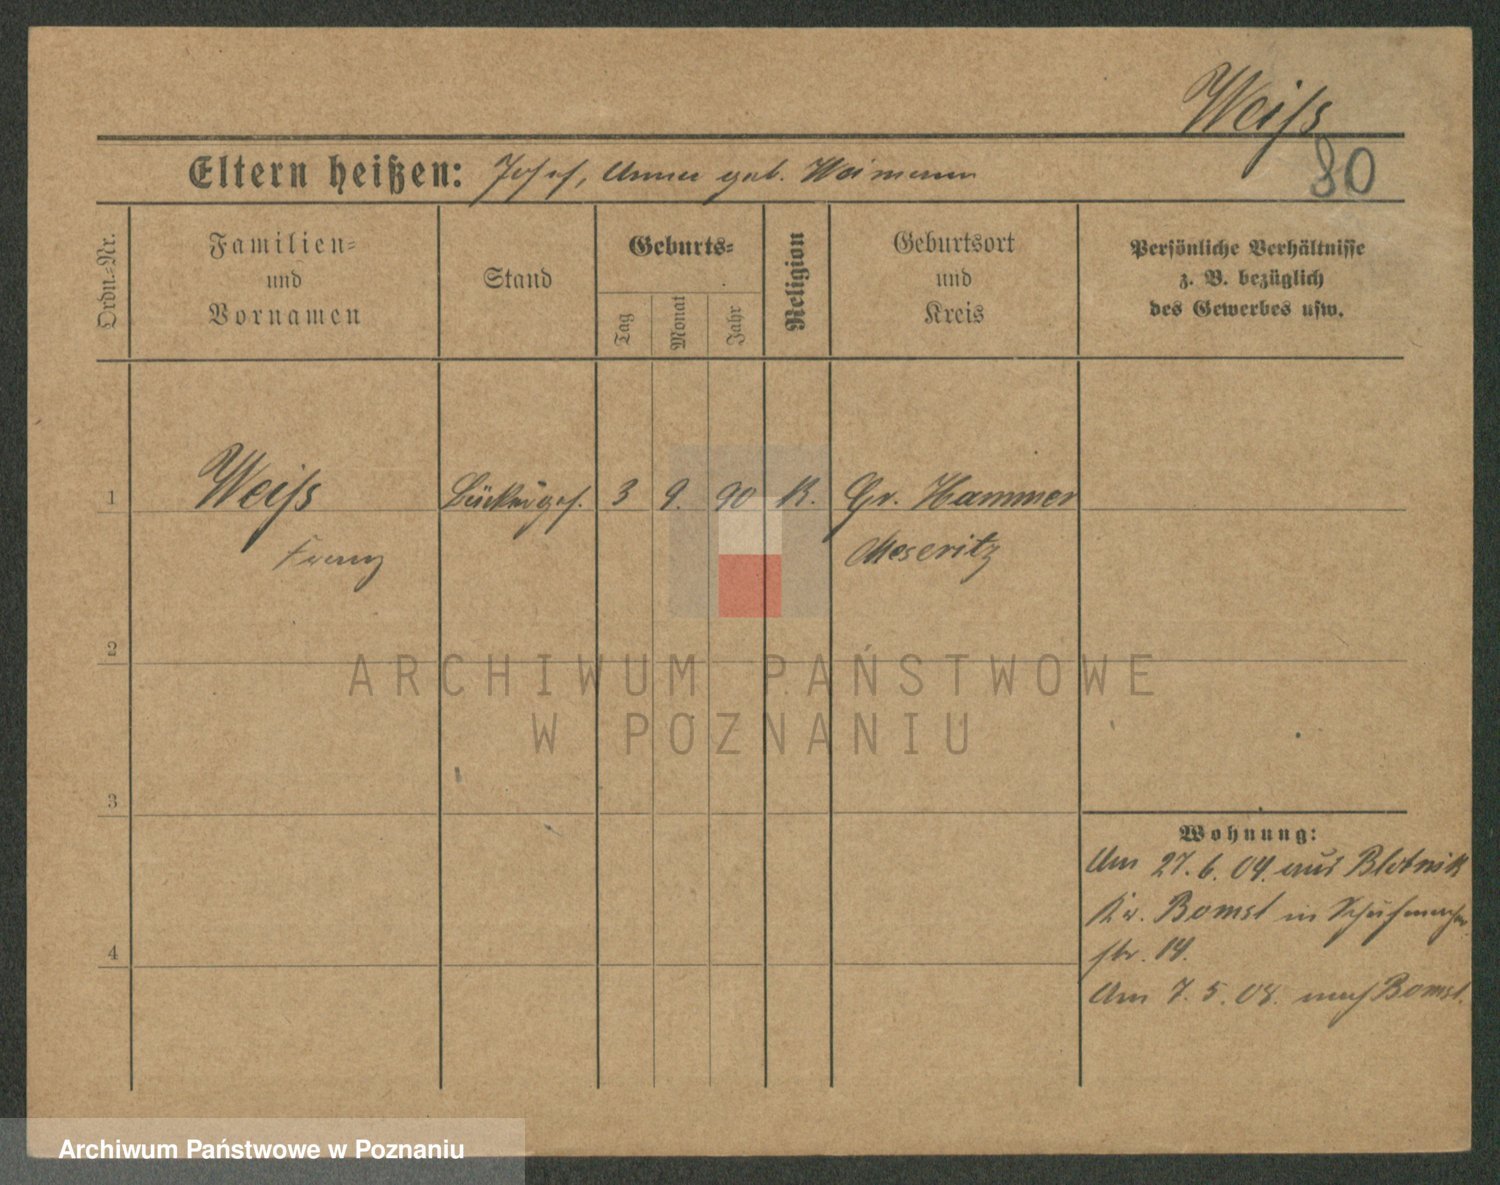 Weiß
80
Eltern heißen: Josef, Anna geb. Weimann
Ordn.-Nr.
Familien- und Vornamen
Stand
Geburts-
Tag
Monat
Jahr
Religion
Geburtsort und Kreis
Persönliche Verhältnisse
z. B. bezüglich
des Gewerbes usw.
1 Weiß 3 9. 90 K. Gr. Hammer
Franz Meseritz
2
3
4
Wohnung:
Am 27. 6. 04. aus Blotnik
Kr. Bomst in Schuhmacher
str. 14.
Am 7. 5. 08. nach Bomst.
ARCHIWUM PAŃSTWOWE
W POZNANIU
Archiwum Państwowe w Poznaniu